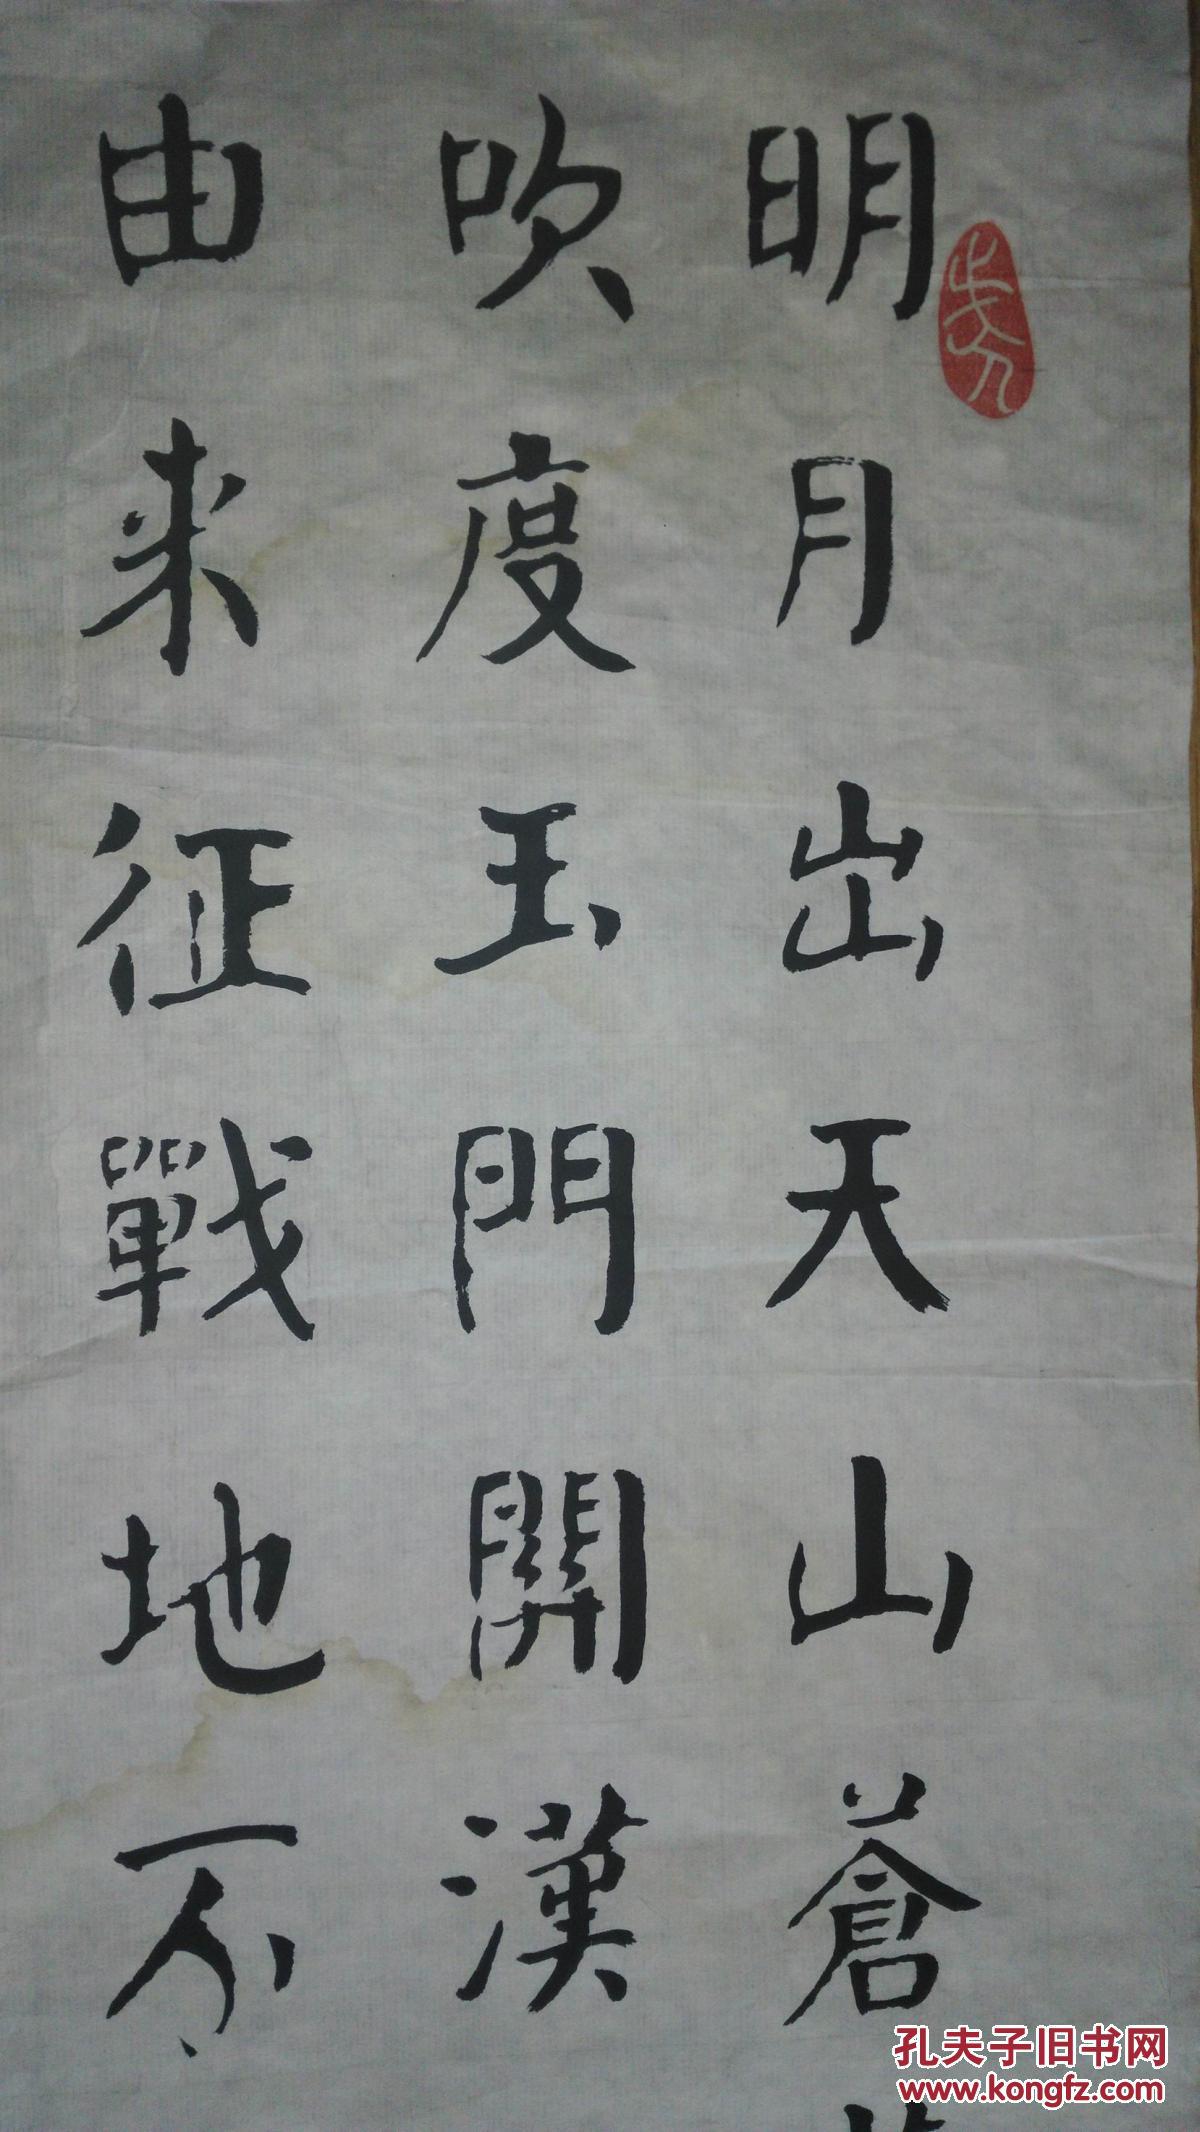 明月出天山蒼
吹度玉門關漢
由来征戰地不
孔夫子旧书网
www.kongfz.com